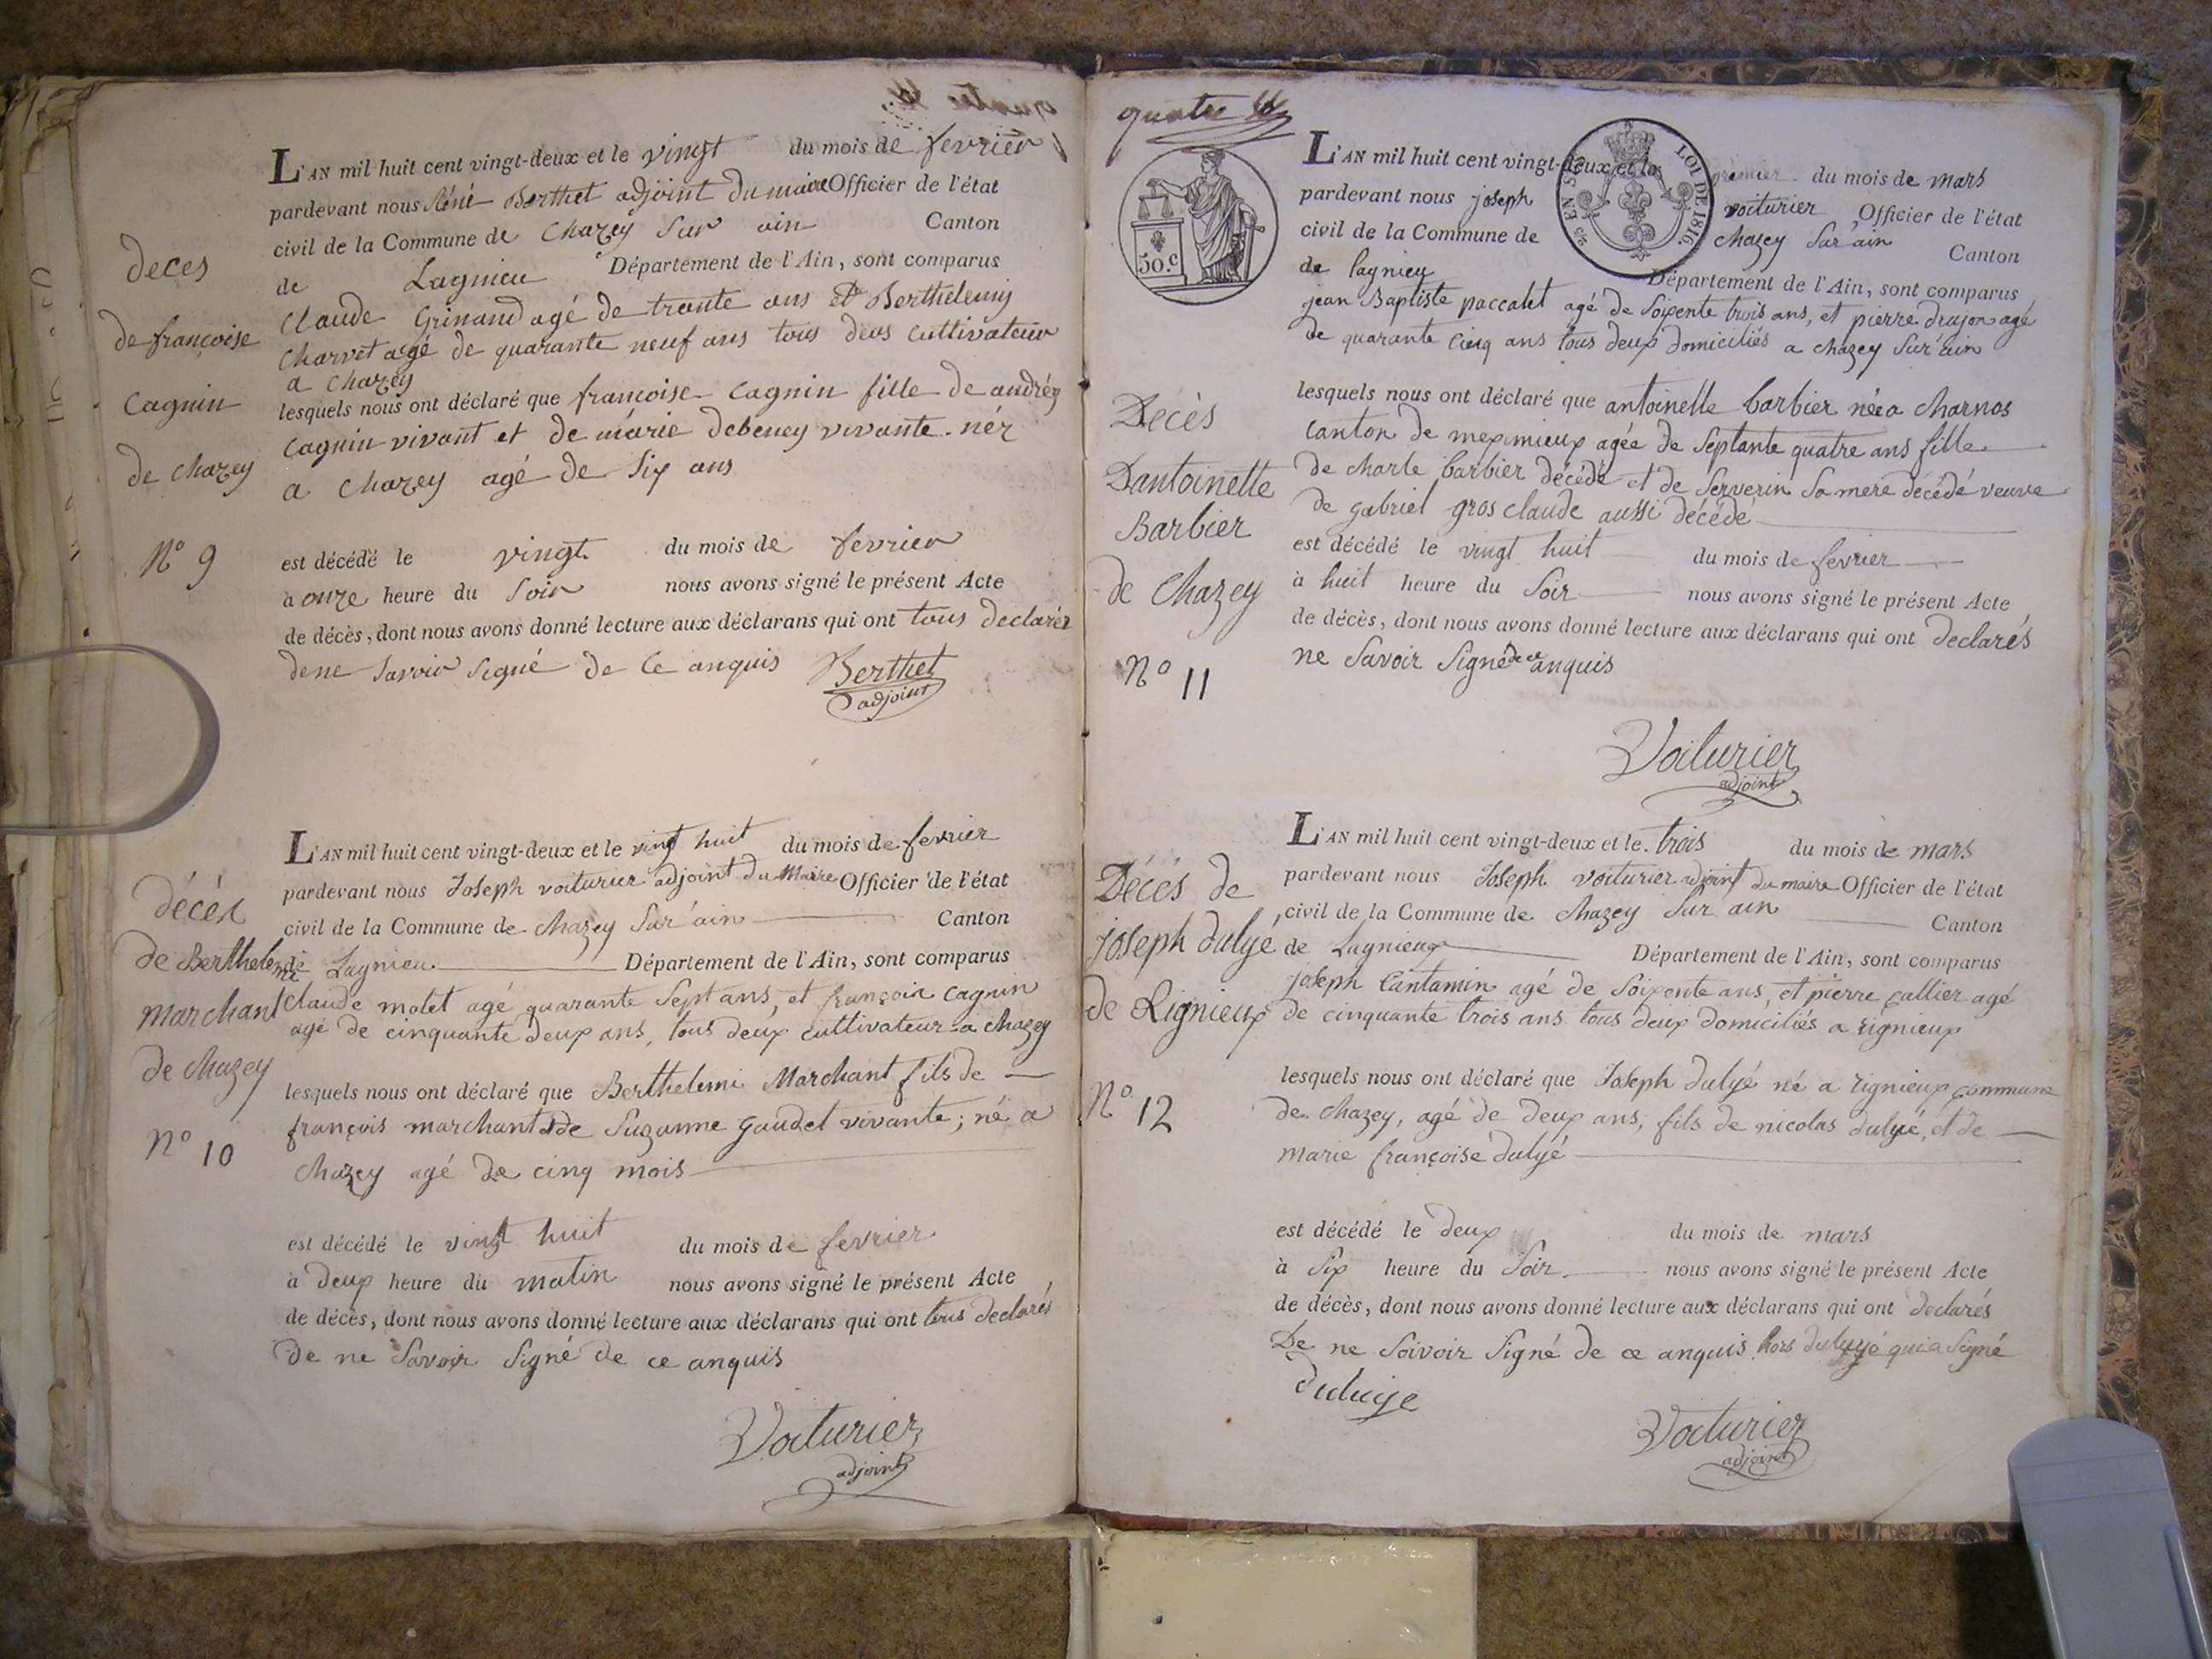 L'AN mil huit cent vingt-deux et le vingt du mois de fevrier
pardevant nous Réné Berthet adjoint du maire Officier de l'état
civil de la Commune de Chazey Sur ain Canton
de Lagnieu Département de l'Ain, sont comparus
Claude Grinand agé de trante ans et Berthelemy
Charvet agé de quarante neuf ans tous deus Cultivateur
a Chazey
lesquels nous ont déclaré que françoise Cagnin fille de andréy
Cagnin vivant et de márie debeney vivante. néz
a Chazey agé de Six ans
est décédé le vingt du mois de fevrier
à onze heure du Soir nous avons signé le présent Acte
de décès, dont nous avons donné lecture aux déclarans qui ont tous declaréz
dene Savoir Signé de Ce anquis Berthet
adjoint
deces
de françoise
Cagnin
de Chazey
N° 9
L'AN mil huit cent vingt-deux et le vingt huit du mois de fevrier
pardevant nous Joseph voiturier adjoint du Maire Officier de l'état
civil de la Commune de Chazey Sur ain Canton
de Lagnieu Département de l'Ain, sont comparus
Claude molet agé quarante Sept ans, et françois Cagnin
agé de cinquante deux ans, tous deux cultivateur a Chazey
lesquels nous ont déclaré que Berthelemi Marchant fils de
françois marchant et de Suzanne Gaudet vivante; né a
Chazey agé de cinq mois
est décédé le vingt huit du mois de fevrier
à deux heure du matin nous avons signé le présent Acte
de décès, dont nous avons donné lecture aux déclarans qui ont tous declarés
de ne Savoir Signé de ce anquis
Voiturier
adjoint
décés
de Berthelemi
marchant
de Chazey
N° 10
quatre
50.c
LOI DE 1816.
L'AN mil huit cent vingt-deux et le premier du mois de mars
pardevant nous joseph voiturier Officier de l'état
civil de la Commune de Chazey Sur ain Canton
de lagnieu Département de l'Ain, sont comparus
jean Baptiste paccalet agé de Soixente trois ans, et pierre drujon agé
de quarante Cinq ans tous deux domiciliés a Chazey Sur ain
lesquels nous ont déclaré que antoinette barbier née a Charnos
Canton de meximieux agée de Septante quatre ans fille
de Charle barbier décédé et de Serverin Sa mere décédé veuve
de gabriel gros claude aussi décédé
est décédé le vingt huit du mois de fevrier
à huit heure du Soir nous avons signé le présent Acte
de décès, dont nous avons donné lecture aux déclarans qui ont declarés
ne Savoir Signé de ce anquis
Voiturier
adjoint
Décès
Dantoinette
Barbier
de Chazey
N° 11
L'AN mil huit cent vingt-deux et le trois du mois de mars
pardevant nous Joseph voiturier adjoint du maire Officier de l'état
civil de la Commune de Chazey Sur ain Canton
de Lagnieux Département de l'Ain, sont comparus
joseph Cantamin agé de Soixente ans, et pierre Callier agé
de cinquante trois ans tous deux domiciliés a rignieux
lesquels nous ont déclaré que Joseph dulyé né a rignieux commune
de Chazey, agé de deux ans, fils de nicolas dulyé, et de
marie françoise dulyé
est décédé le deux du mois de mars
à Six heure du Soir nous avons signé le présent Acte
de décès, dont nous avons donné lecture aux déclarans qui ont declarés
De ne Soivoir Signé de ce anquis hors duluyé qui a Signé
Voiturier
adjoint
Décés de
joseph dulyé
de Rignieux
N° 12